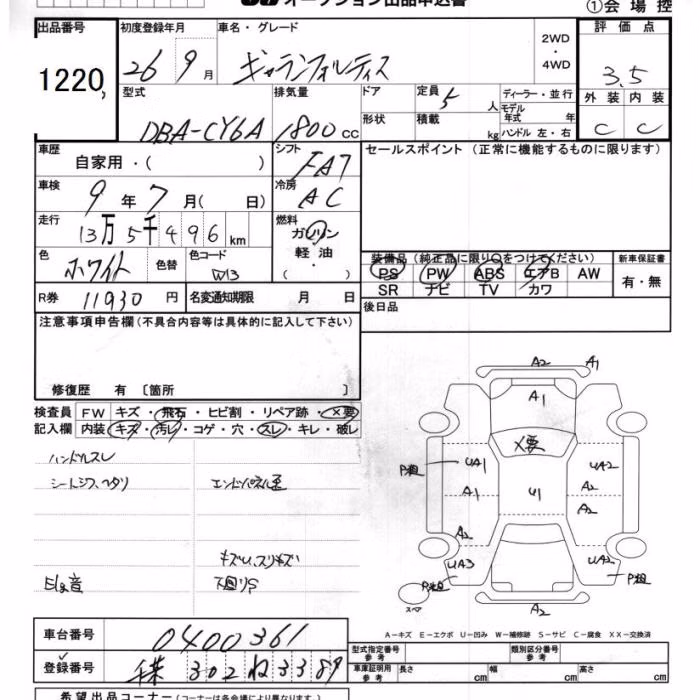 オークション出品申込書
①会場控
出品番号 1220,
初度登録年月 26 9月
車名・グレード ギャランフォルティス
2WD ・ 4WD
評価点 3.5
外装 C 内装 C
型式 DBA-CY6A
排気量 1800 cc
ドア 形状
定員 5 人
積載 kg
ディーラー・並行
モデル年式 年
ハンドル 左・右
車歴 自家用・( )
シフト FA7
セールスポイント (正常に機能するものに限ります)
車検 9年 7月( 日)
冷房 AC
走行 13万5千496km
燃料 ガソリン 軽油・( )
色 ホワイト 色替 色コード W13
装備品 (純正品に限り○をつけてください)
PS PW ABS エアB AW
SR ナビ TV カワ
新車保証書 有・無
R券 11930円 名変通知期限 月 日
後日品
注意事項申告欄 (不具合内容等は具体的に記入して下さい)
修復歴 有 〔箇所 〕
検査員記入欄
FW キズ・飛石・ヒビ割・リペア跡・×要
内装 キズ・汚レ・コゲ・穴・スレ・キレ・破レ
ハンドルスレ
シートシワ、ヘタリ
エンドパネル歪
キズU、スリキズ
Eg音
下回りS
A2 A1
A1
×要
P担 UA1 UA2
A1 U1 A2
A2 A2
UA3 P担 UA2 P担
スペア A2
A-キズ E-エクボ U-凹み W-補修跡 S-サビ C-腐食 XX-交換済
車台番号 0400361
型式指定番号 参考
類別区分番号 参考
登録番号 千葉 302 ね 3389
車庫証明用 参考 長さ cm 幅 cm 高さ cm
希望出品コーナー (コーナーは各会場により異なります。)